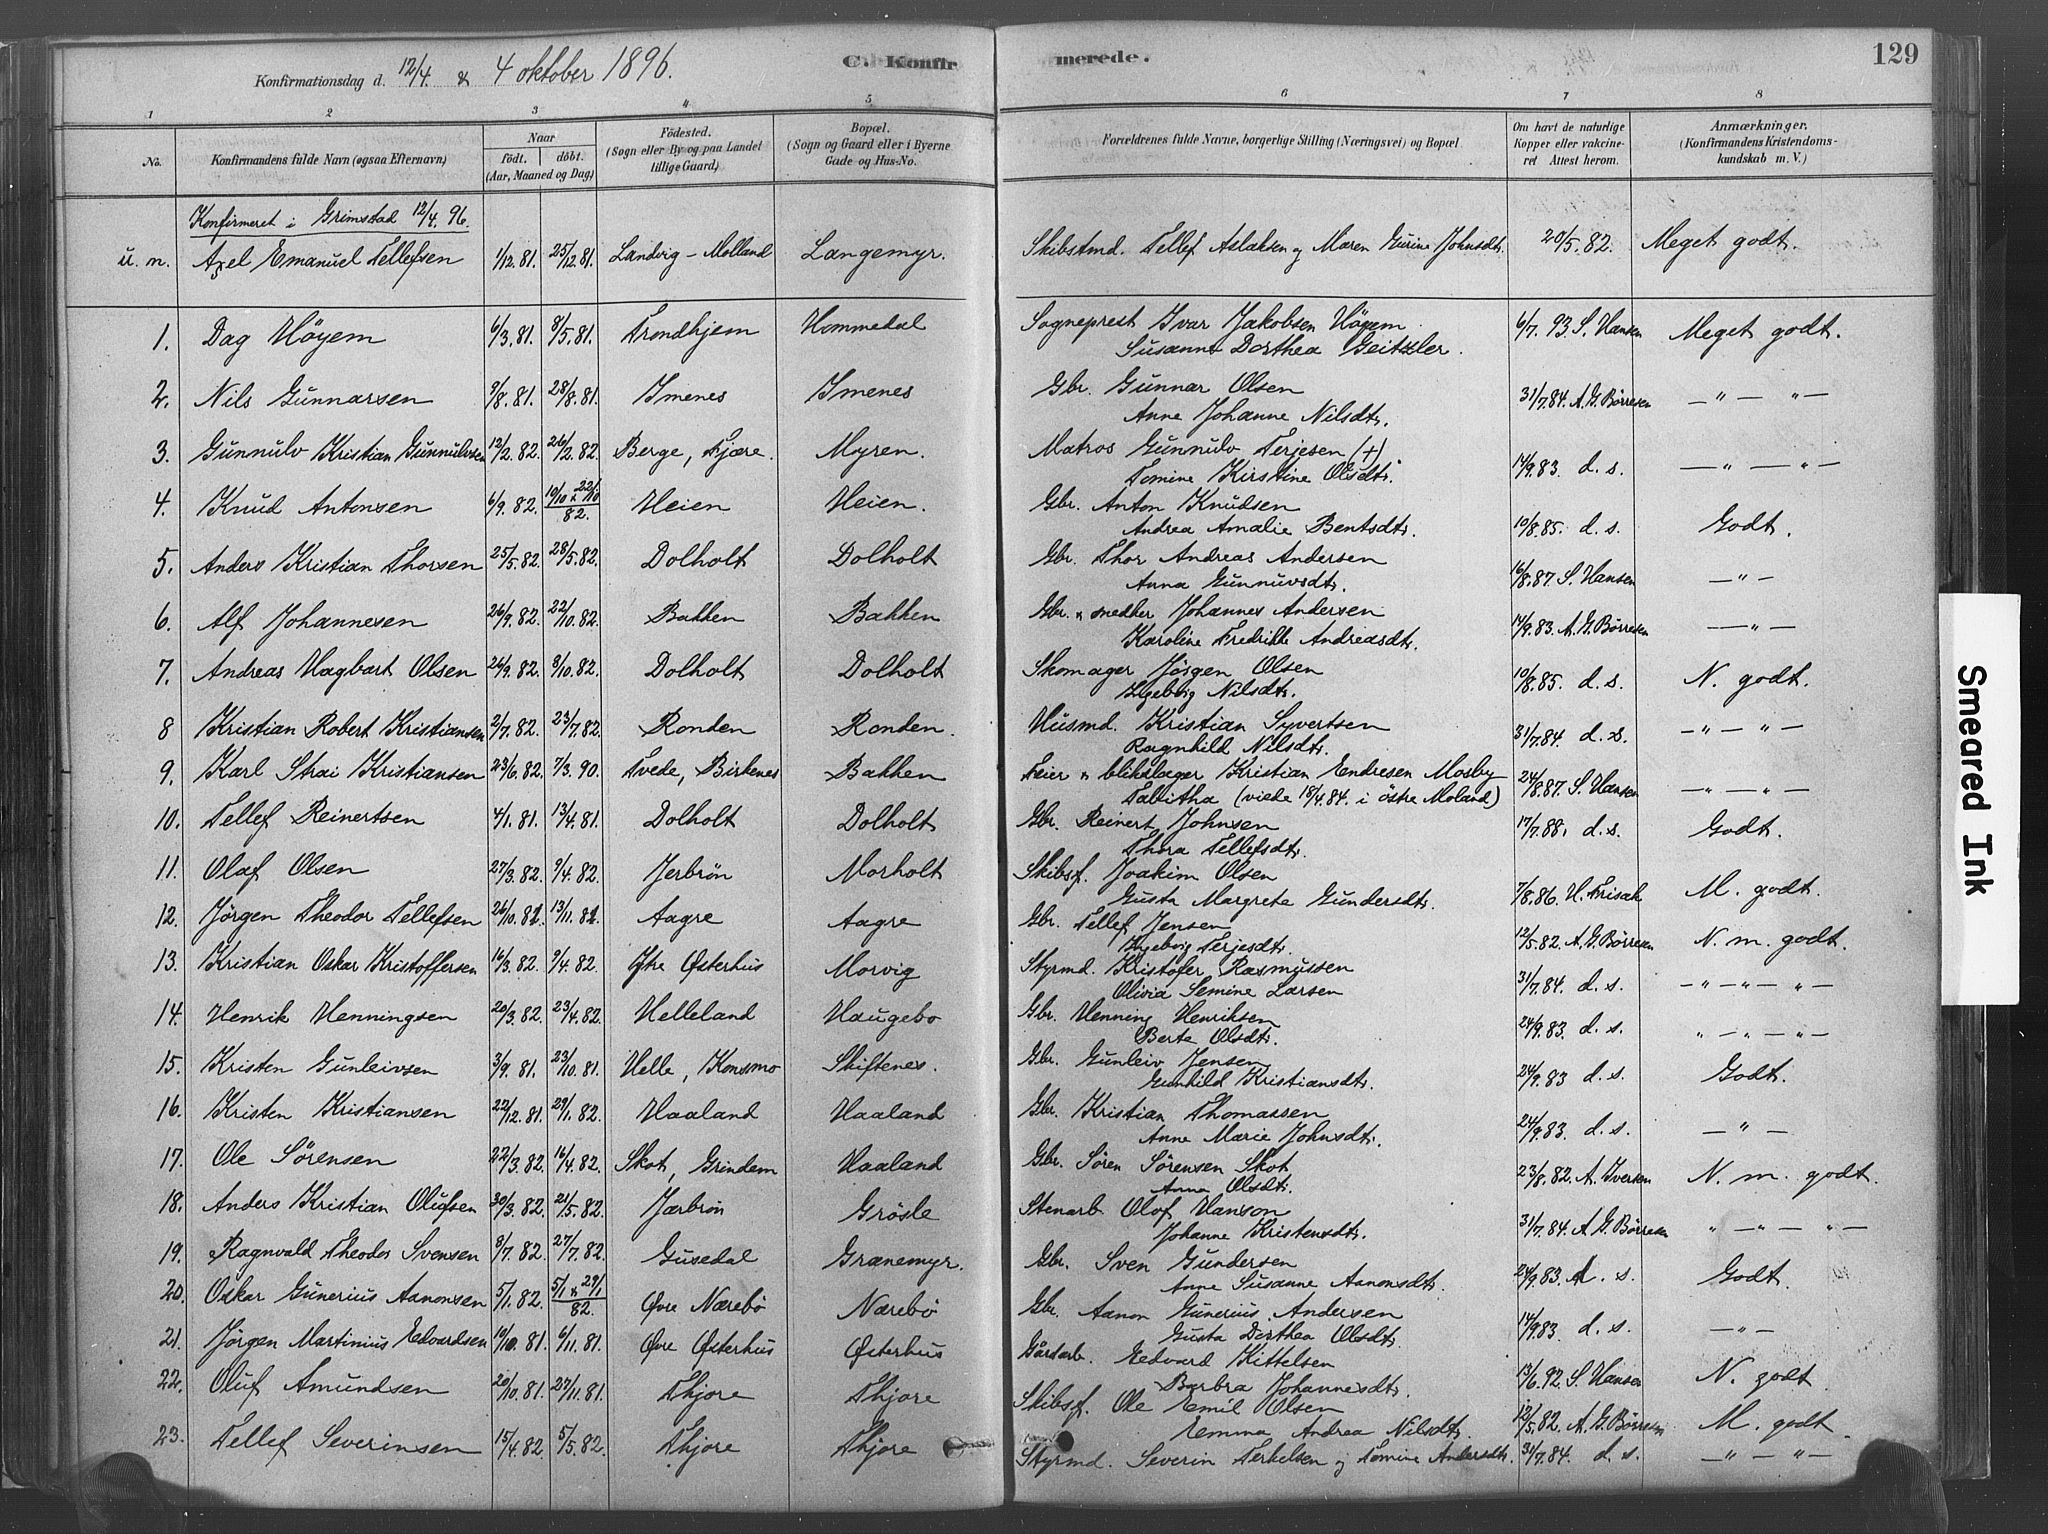 129
Konfirmationsdag d. 12/4. & 4 oktober 1896. C. Konfirmerede.
1 2 3 4 5 6 7 8
No. Konfirmandens fulde Navn (ogsaa Efternavn) Naar födt. döbt. (Aar, Maaned og Dag) Födested. (Sogn eller By og paa Landet tillige Gaard) Bopæl. (Sogn og Gaard eller i Byerne Gade og Hus-No. Forældrenes fulde Navne, borgerlige Stilling (Næringsvei) og Bopæl Om havt de naturlige Kopper eller vaccineret Attest herom. Anmærkninger. (Konfirmandens Kristendomskundskab m. V.)
Konfirmeret i Grimstad 12/4. 96.
u. m. Axel Emanuel Tellefsen 1/12. 81. 25/12. 81. Landvig - Molland Langemyr. Skibstmd. Tellef Aslaksen og Maren Gurine Johnsdtr. 20/5. 82. Meget godt.
1. Dag Höyem 6/3. 81. 8/5. 81. Trondhjem Hommedal Sogneprest Ivar Jakobsen Höyem 6/7. 93. S. Hansen Meget godt.
Susanna Dorthea Geitzler.
2. Nils Gunnarsen 9/8. 81. 28/8. 81. Imenes Imenes Gbr. Gunnar Olsen 31/7. 84. A. G. Börresen — " — " —
Anne Johanne Nilsdtr.
3. Gunnulv Kristian Gunnulvsen 12/2. 82. 26/2. 82. Berge, Fjære. Myren. Matros Gunnulv Terjesen (+) 14/9. 83. d. s. — " — " —
Tomine Kirstine Olsdtr.
4. Knud Antonsen 6/9. 82. 10/10 & 22/10 82. Heien Heien. Gbr. Anton Knudsen 10/8. 85. d. s. Godt.
Andrea Amalie Bentsdtr.
5. Anders Kristian Thorsen 25/5. 82. 28/5. 82. Dolholt Dolholt Gbr. Thor Andreas Andersen 16/8. 87. S. Hansen — " —
Anna Gunnuvsdtr.
6. Alf Johannesen 26/9. 82. 22/10. 82. Bakken Bakken Gbr. & snedker Johannes Andersen 14/9. 83. A. G. Börresen — " —
Karoline Fredrikke Andreasdtr.
7. Andreas Hagbart Olsen 26/9. 82. 8/10. 82. Dolholt Dolholt Skomager Jörgen Olsen 10/8. 85. d. s. N. godt.
Ingebog Nilsdtr.
8 Kristian Robert Kristiansen 2/7. 82. 23/7. 82. Ronden Ronden. Husmd. Kristian Syvertsen 31/7. 84. d. s. — " — " —
Ragnhild Nilsdtr.
9. Karl Strai Kristiansen 23/6. 82. 7/3. 90. Tvede, Birkenes Bakken Feier & blikslager Kristian Endresen Mosby 24/8. 87. S. Hansen — " — " —
Tabitha (viede 18/4. 84. i östre Moland)
10. Tellef Reinertsen 4/1. 81. 13/4. 81. Dolholt Dolholt Gbr. Reinert Johnsen 17/7. 88. d. s. Godt.
Thora Tellefsdtr.
11. Olaf Olsen 27/3. 82. 9/4. 82. Jerbrön Morholt Skibsf. Joakim Olsen 7/8. 86. H. Frisak M. godt.
Gusta Margreta Gundersdtr.
12. Jörgen Theodor Tellefsen 26/10. 81. 13/11. 81. Aagre Aagre Gbr. Tellef Jensen 12/5. 82. A. G. Börresen N. m. godt.
Ingebog Terjesdtr.
13. Kristian Oskar Kristoffersen 16/3. 82. 9/4. 82. Ytre Østerhus Morvig Styrmd. Kristofer Rasmussen 31/7. 84. d. s. — " — " — " —
Olivia Semine Larsen
14. Henrik Henningsen 20/3. 82. 23/4. 82. Helleland Haugebo Gbr. Henning Henriksen 24/9. 83. d. s. " — " — " —
Berte Olsdtr.
15. Kristen Gunleivsen 3/9. 81. 23/10. 81. Helle, Konsmo Skiftenes. Gbr. Gunleiv Jensen 24/9. 83 d. s. Godt.
Gunhild Kristiansdtr.
16. Kristen Kristiansen 22/12. 81. 29/1. 82. Haaland Haaland Gbr. Kristian Thomassen 24/9. 83. d. s. — " —
Anne Marie Johnsdtr.
17. Ole Sörensen 22/3. 82. 16/4. 82. Skot, Grindem Haaland Gbr. Sören Sörensen Skot 23/8. 82. A. Iversen N. m. godt.
Anna Olsdtr.
18. Anders Kristian Olufsen 30/3. 82. 21/5. 82. Jærbrön Grösle Stenarb. Olof Hanson 31/7. 84. A. G. Börresen " — " — " —
Johanne Kristensdtr.
19. Ragnvald Theodor Svensen 8/7. 82. 27/7. 82. Gusedal Grænemyr. Gbr. Sven Gundersen 24/9. 83. d. s. Godt.
Anne Susanne Aanonsdtr.
20. Oskar Gunerius Aanonsen 5/1. 82. 5/1 & 29/1 82. Øvre Nærebö Nærebö Gbr. Aanon Gunerius Andersen 14/9. 83. d. s. — " —
Gusta Dorthea Olsdtr.
21. Jörgen Martinius Edvardsen 16/10. 81. 6/11. 81. Øvre Østerhus Østerhus Gårdarb. Eedvard Kittelsen 13/6. 92. S. Hansen N. godt
Barbra Johannesdtr.
22. Oluf Amundsen 20/10. 81. 27/11. 81. Thjore Thjore Skibsf. Ole Emil Olsen 12/5. 82. A. G. Börresen M. godt
Emma Andrea Nilsdtr.
23. Tellef Severinsen 15/4. 82. 5/5. 82. Thjore Thjore Styrmd. Severin Terkelsen og Tomine Andersdtr. 31/7. 84. d. s. — " — " —
Smeared Ink